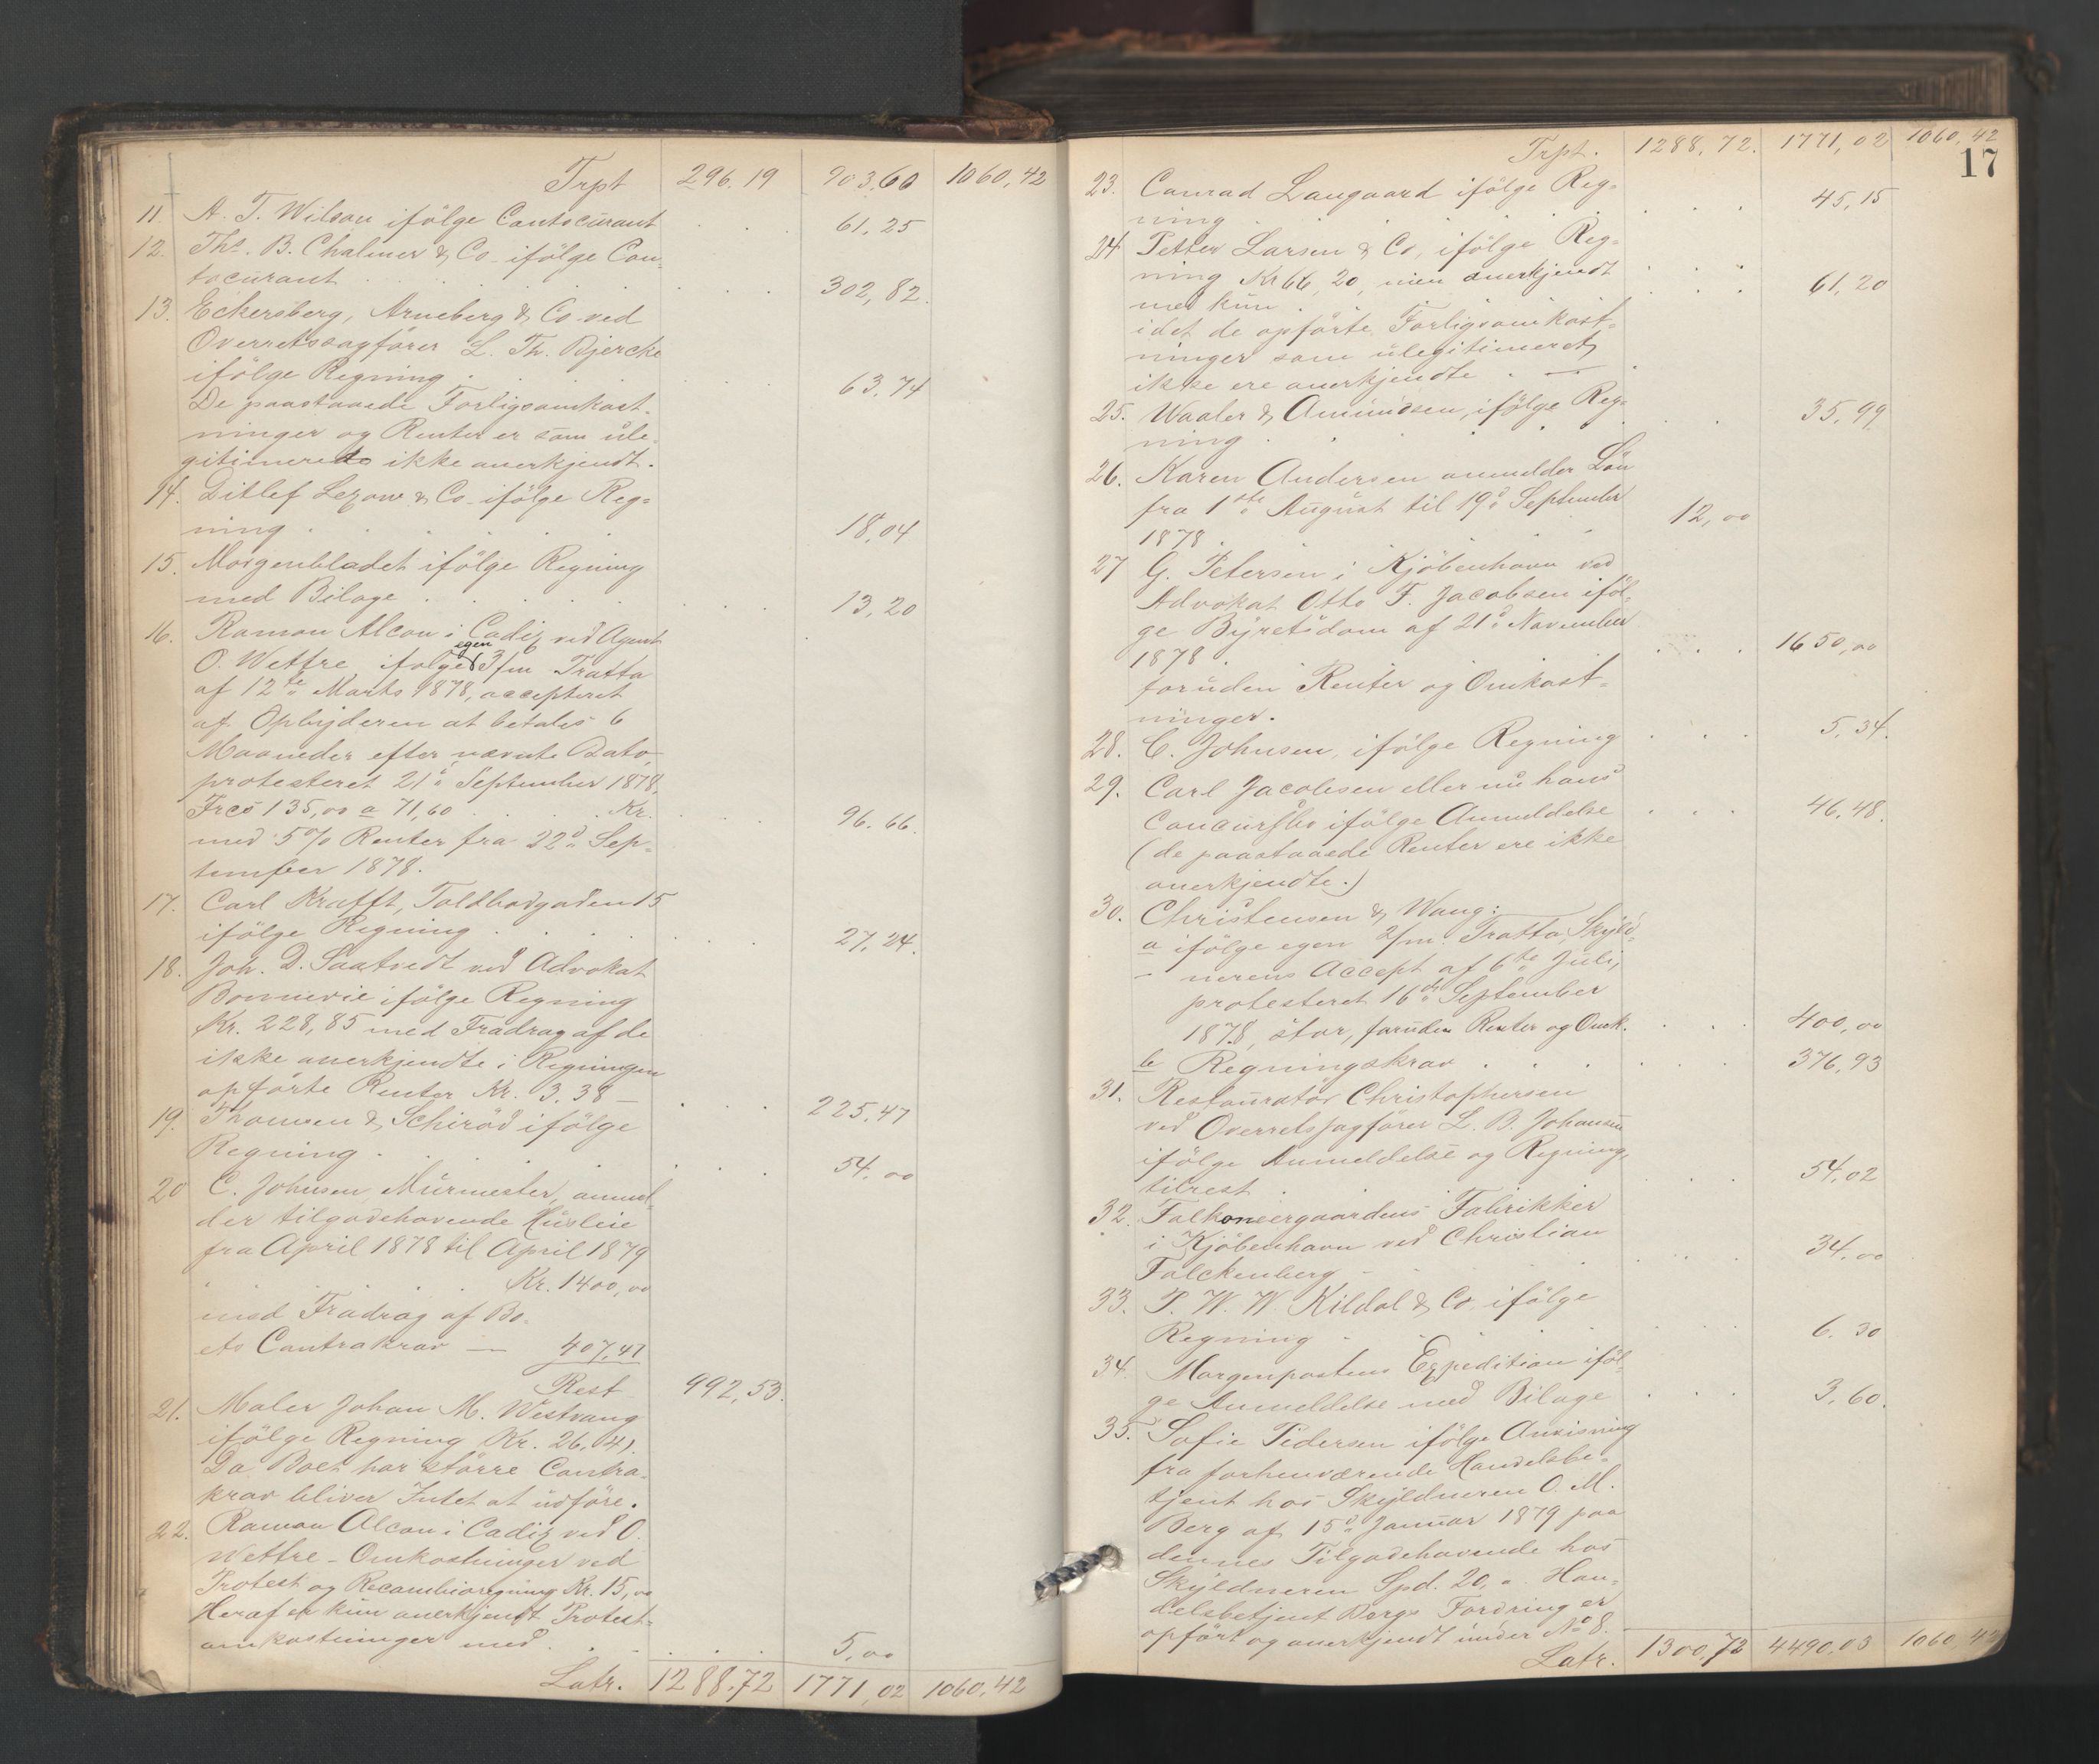 Trpt 296.19 903,60 1060,42
11. A. T. Wilson ifölge Contocurant . . . 61,25
12. Ths. B. Chalmer & Co. ifölge Con-
tocurant . . . 302,82.
13. Eckersberg, Arneberg & Co. ved
Overretssagförer L. Th. Bjercke
ifölge Regning . . . 63,74
De paastaaede Forligsomkost-
ninger og Renter er som ule-
gitimerede ikke anerkjendt.
14. Ditlef Lexow & Co. ifölge Reg-
ning . . . 18,04
15. Morgenbladet ifölge Regning
med Bilage . . . 13,20
16. Ramon Alcon i Cadiz ved Agent
O. Wettre ifölge egen 3/m Tratta
af 12te Marts 1878, accepteret
af Opbyderen at betales 6
Maaneder efter nævnte Dato,
protesteret 21d September 1878,
Frcs 135,00 a 71,60 . . . Kr. . . . 96.66.
med 5% Renter fra 22d Sep-
tember 1878.
17. Carl Krafft, Toldbodgaden 15
ifölge Regning . . . 27,24.
18. Joh. D. Saatvedt ved Advokat
Bonnevie ifölge Regning
Kr. 228,85 med Fradrag af de
ikke anerkjendte i Regningen
opförte Renter Kr. 3.38 — . . . 225,47
19. Thomsen & Schiröd ifölge
Regning . . . 54,00
20 C. Johnsen, Murmester, anmel-
der tilgodehavende Husleie
fra April 1878 til April 1879
. . . Kr. 1400,00
med Fradrag af Bo-
ets Contrakrav — 407,47
Rest 992,53.
21. Maler Johan M. Westvang
ifölge Regning Kr. 26,041.
Da Boet har större Contra-
krav bliver Intet at udföre.
22. Ramon Alcon i Cadiz ved O.
Wettre - Omkostninger ved
Protest og Recambioregning Kr. 15,00
Heraf er kun anerkjendt Protest-
omkostninger med . . . 5,00
Latr. 1288,72 1771,02 1060,42
17
Trpt. 1288,72. 1771,02 1060,42
23. Conrad Langaard ifölge Reg-
ning . . . 45,15
24 Petter Larsen & Co, ifölge Reg-
ning Kr 66,20, men anerkjendt
med kun . . . 61,20
idet de opförte Forligsomkost-
ninger som ulegitimeret,
ikke ere anerkjendte . —
25. Waaler & Amundsen, ifölge Reg-
ning . . . 35,99
26. Karen Andersen anmelder Lön
fra 1ste August til 19d September
1878 . . . 12,00
27 G. Petersen i Kjöbenhavn ved
Advokat Otto F. Jacobsen iföl-
ge Byretsdom af 21d November
1878 . . . 1650,00
foruden Renter og Omkost-
ninger.
28. C. Johnsen, ifölge Regning . . . 5,34.
29. Carl Jacobsen eller nu hans
Concursbo ifölge Anmeldelse . . . 46,48.
(de paastaaede Renter ere ikke
anerkjendte.)
30. Christensen & Wang:
a ifölge egen 2/m. Tratta, Skyld-
- nerens Accept af 6te Juli,
protesteret 16de September
1878, stor, foruden Renter og Omk. . . . 400,00
b Regningskrav . . . 376,93
31. Restauratör Christophersen
ved Overretssagförer L. B. Johansen
ifölge Anmeldelse og Regning,
tilrest . . . 54,02
32. Falkoneergaardens Fabrikker
i Kjöbenhavn ved Christian
Falckenberg . . . 34,00
33. P. W. W. Kildal & Co, ifölge
Regning . . . 6.30
34. Morgenpostens Expedition iföl-
ge Anmeldelse med Bilage . . . 3,60.
35. Sofie Pedersen ifölge Anvisning
fra forhenværende Handelsbe-
tjent hos Skyldneren O. M.
Berg af 15d Januar 1879 paa
dennes Tilgodehavende hos
Skyldneren Spd. 20,". Han-
delsbetjent Bergs Fordring er
opfört og anerkjendt under No 8.
Latr. 1300,72 4490,03 1060,42